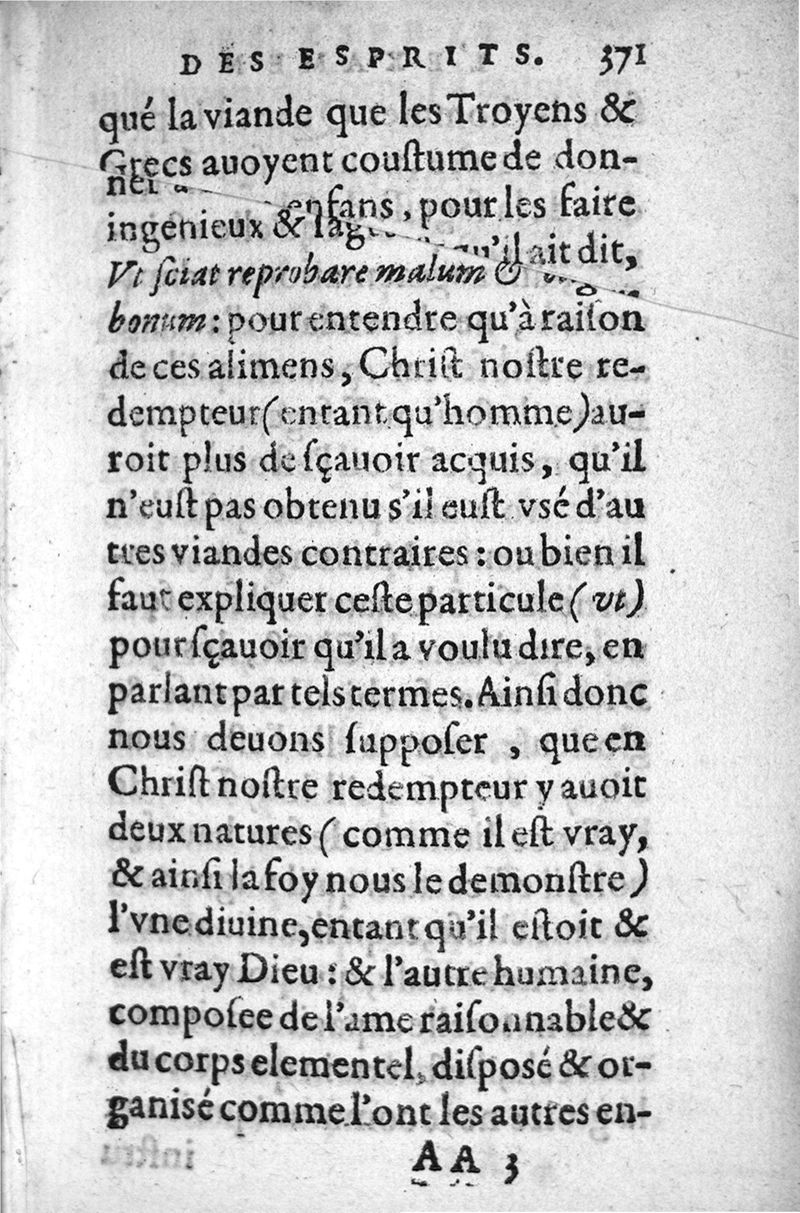 DES ESPRITS. 371
qué la viande que les Troyens &
Grecs auoyent couſtume de don-
ner enfans, pour les faire
ingenieux & qu'il ait dit,
Vt ſciat reprobare malum &
bonum: pour entendre qu'à raiſon
de ces alimens, Chriſt noſtre re-
dempteur (entant qu'homme) au-
roit plus de ſçauoir acquis, qu'il
n'euſt pas obtenu s'il euſt vsé d'au
tres viandes contraires: ou bien il
faut expliquer ceſte particule (vt)
pour ſçauoir qu'il a voulu dire, en
parlant par tels termes. Ainſi donc
nous deuons ſuppoſer, que en
Chriſt noſtre redempteur y auoit
deux natures (comme il eſt vray,
& ainſi la foy nous le demonſtre)
l'vne diuine, entant qu'il eſtoit &
eſt vray Dieu: & l'autre humaine,
compoſee de l'ame raiſonnable &
du corps elementel, diſposé & or-
ganisé comme l'ont les autres en-
AA 3